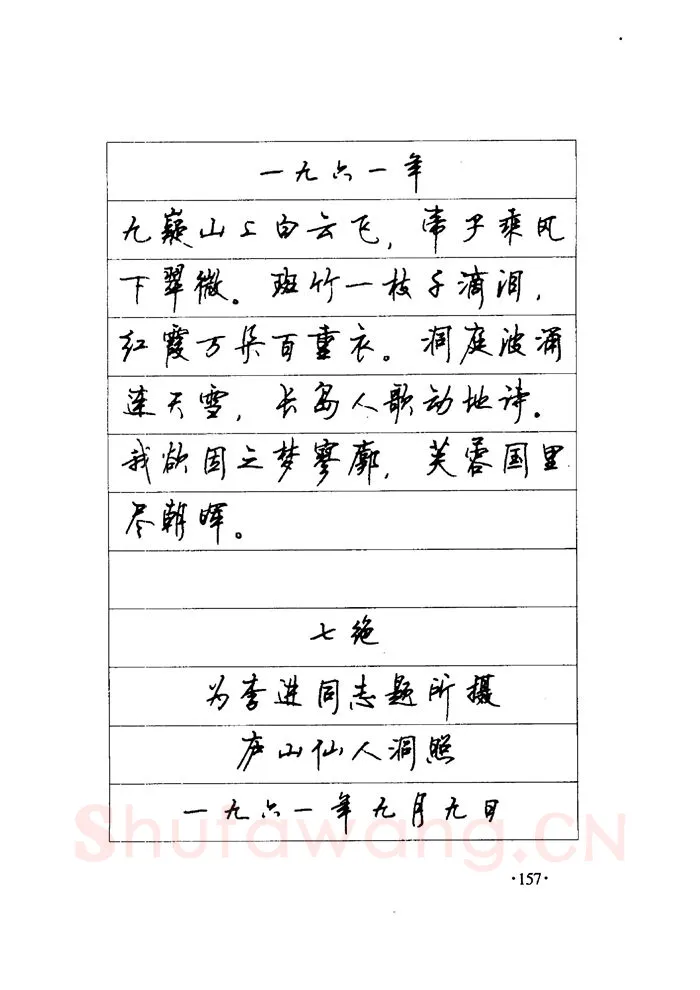 一九六一年
九嶷山上白云飞，帝子乘风
下翠微。斑竹一枝千滴泪，
红霞万朵百重衣。洞庭波涌
连天雪，长岛人歌动地诗。
我欲因之梦寥廓，芙蓉国里
尽朝晖。
七绝
为李进同志题所摄
庐山仙人洞照
一九六一年九月九日
Shufawang.CN
·157·